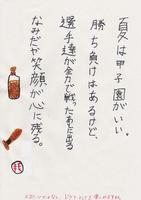 夏は甲子園がいい。
勝ち負けはあるけど、
選手達が全力で戦ったあとに出る
なみだや笑顔が心に残る。